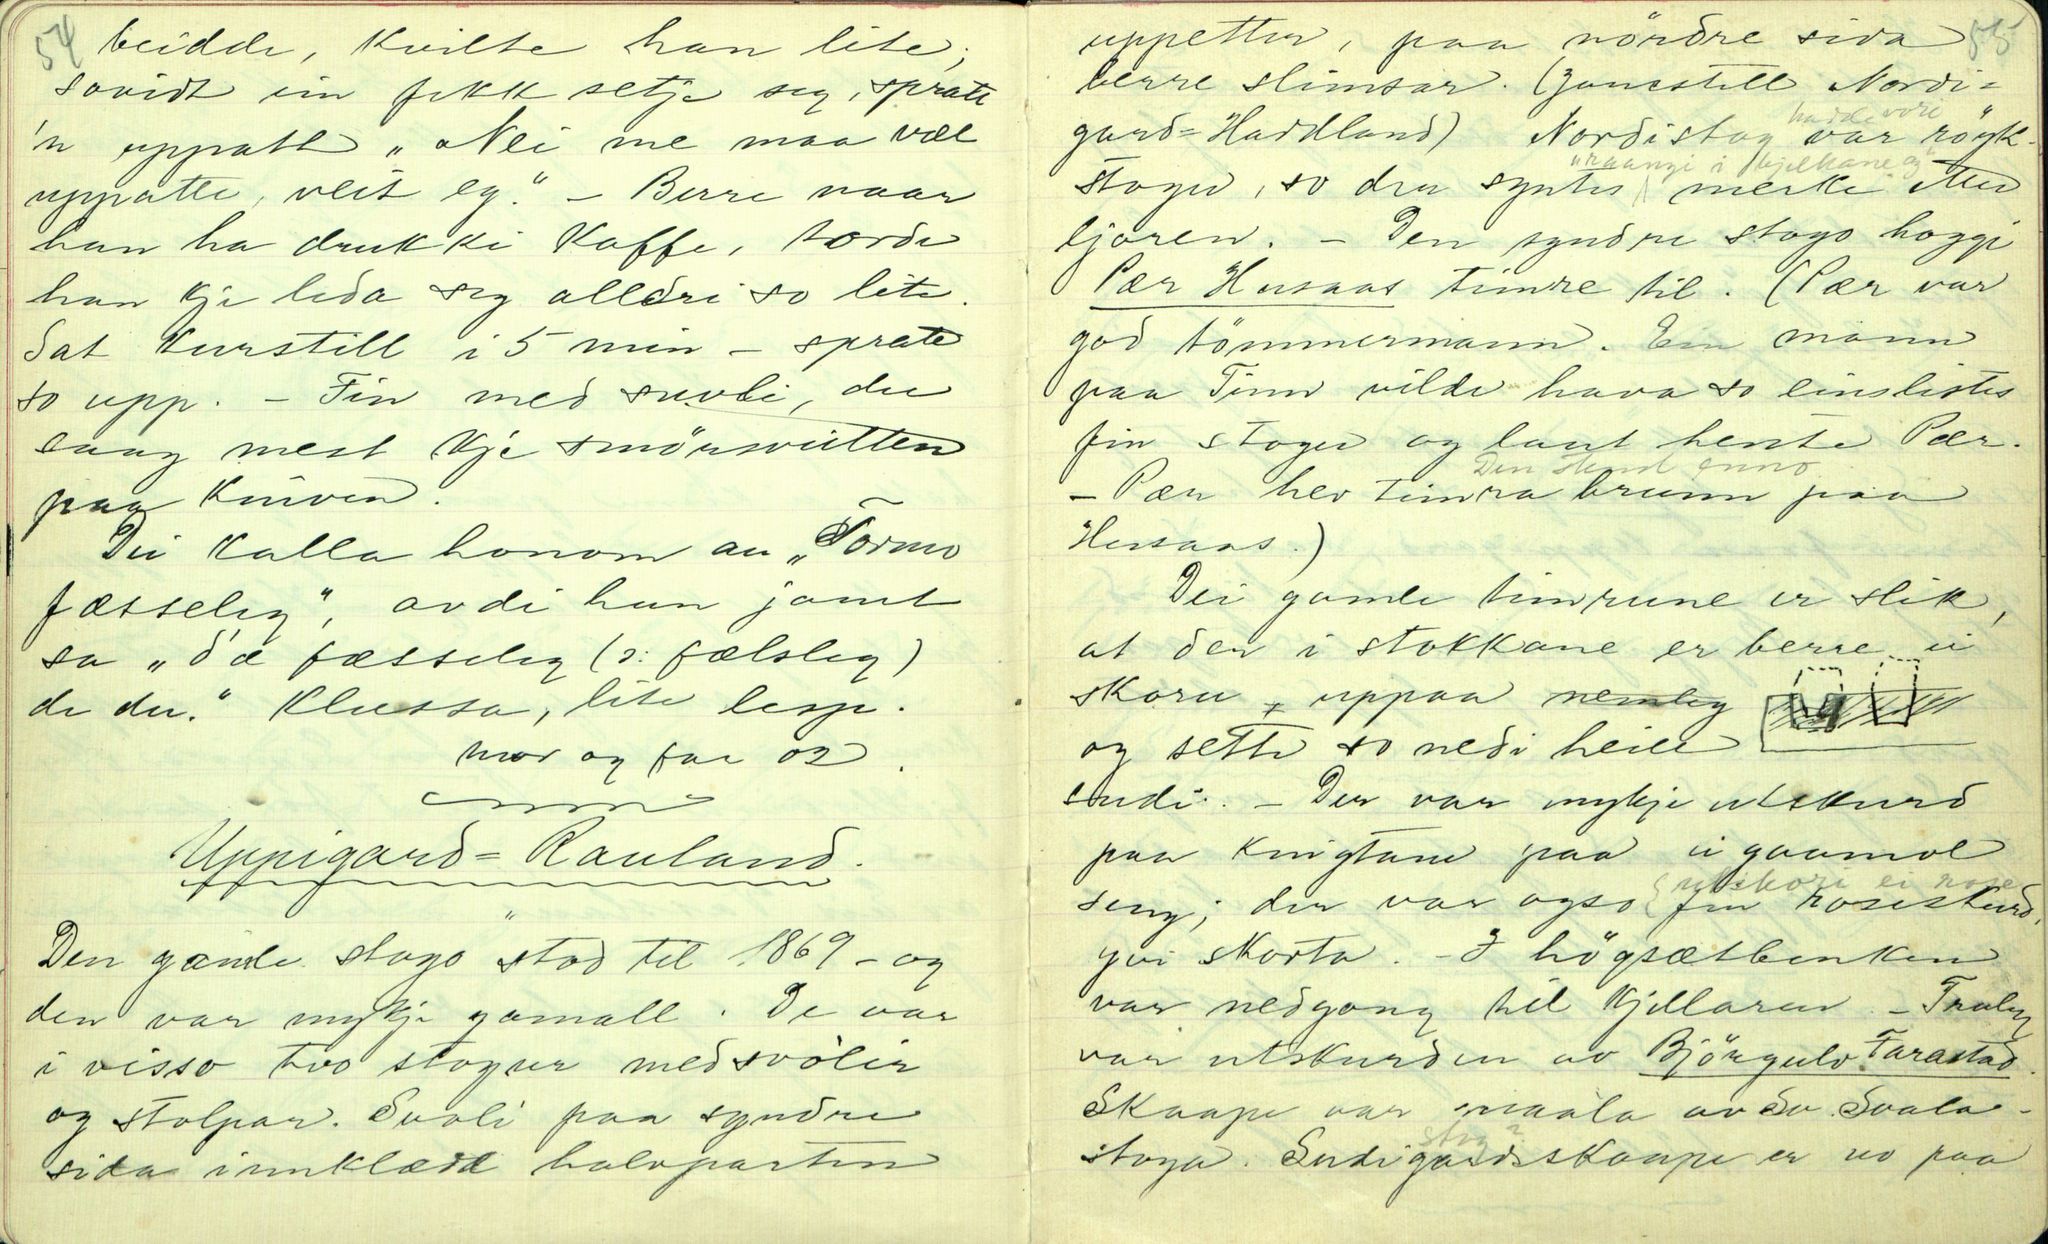 54
beidde, kvilte han lite;
sovidt ein fekk setje seg, spratt
'n uppatt "Nei me maa væl
uppatte, veit eg." – Berre naar
han ha drukki kaffe, torde
han kje leda seg alldri so lite.
Sat kurstill i 5 min – spratt
so upp. – Fin med suvli, du
saag mest kje smörsvitten
paa kniven.
Dei kalla honom au "Tormo
fæsseleg", avdi han jamt
sa "d'æ fæsseleg (ɔ: fælsleg)
de du." Klussa, lite lesp.
mor og far os.
Uppigard=Rauland.
Den gamle stogo stod til 1869 – og
den var mykje gamall. De var
i visso tvo stogur med svòlir
og stolpar. Svoli paa syndre
sida innklædd halvparten
55
uppetter, paa nördre sida
berre slimsar. (Jamstell Nordi=
gard=Haddland) Nordistog var röyk-
hadde vori
"raangi i bjelkane og"
stoge, so der syntes merke etter
ljoren. – Den syndre stogo hoggi
Pær Husaas timre til. (Pær var
god tömmermann. Ein mann
paa Tinn vilde hava so einslistes
fin stoge og laut hente Pær.
Den stend enno
– Pær hev timra brunn paa
Husaas.)
Dei gamle timrune er slik,
at den i stokkane er berre ei
skoru, uppaa nemleg
og sette so nedi heile
endi. – Der var mykje utskurd
paa knigtane paa ei gaamol
utskori ei rose
seng; der var ogso fin roseskurd,
yvi skorta. – I högsætbenken
var nedgong til kjellaren – Truleg
var utskurden av Björgulv Tarastad.
Skaape var maala av Sv. Svala-
stog?
stoga. Sudigardsskaape er no paa